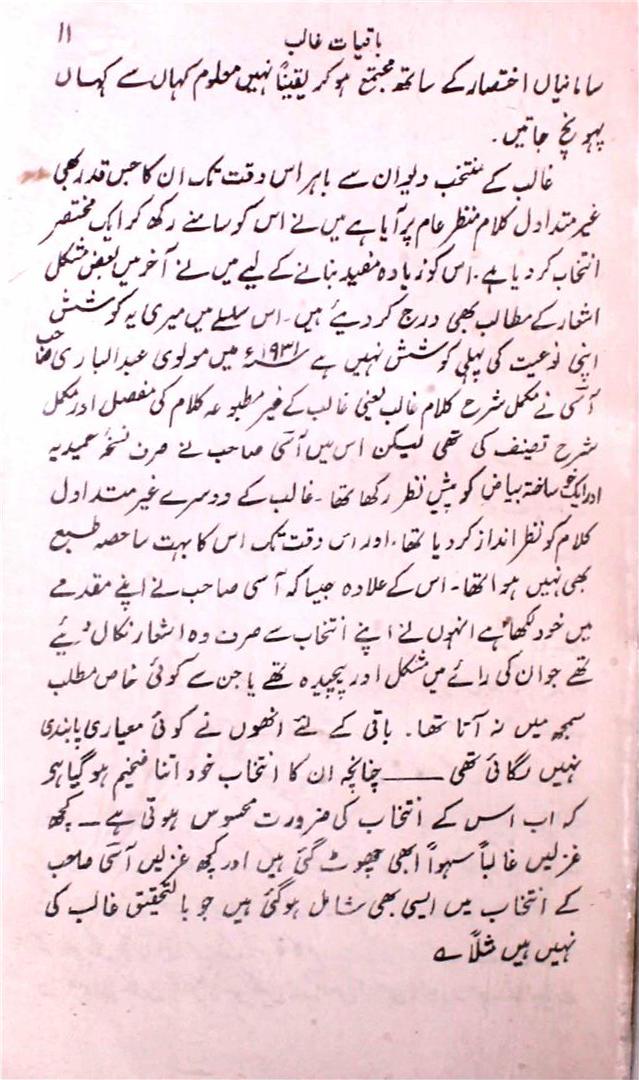 باقیات غالب ۱۱
سامانیاں اختصار کے ساتھ مجتمع ہو کر یقیناً نہیں معلوم کہاں سے کہاں
پہونچ جاتیں۔
غالب کے منتخب دیوان سے باہر اس وقت تک ان کا جس قدر بھی
غیر متداول کلام منظر عام پر آیا ہے میں نے اس کو سامنے رکھ کر ایک مختصر
انتخاب کر دیا ہے۔ اس کو زیادہ مفید بنانے کے لیے میں نے آخر میں بعض مشکل
اشعار کے مطالب بھی درج کر دیئے ہیں۔ اس سلسلے میں میری یہ کوشش
اپنی نوعیت کی پہلی کوشش نہیں ہے ۱۹۳۱ء میں مولوی عبدالباری صاحب
آسی نے مکمل شرح کلام غالب یعنی غالب کے غیر مطبوعہ کلام کی مفصل اور مکمل
شرح تصنیف کی تھی لیکن اس میں آسی صاحب نے صرف نسخۂ حمیدیہ
اور ایک خود ساختہ بیاض کو پیش نظر رکھا تھا۔ غالب کے دوسرے غیر متداول
کلام کو نظر انداز کر دیا تھا، اور اس وقت تک اس کا بہت سا حصہ طبع
بھی نہیں ہوا تھا۔ اس کے علاوہ جیسا کہ آسی صاحب نے اپنے مقدمے
میں خود لکھا ہے انہوں نے اپنے انتخاب سے صرف وہ اشعار نکال دئیے
تھے جو ان کی رائے میں مشکل اور پیچیدہ تھے یا جن سے کوئی خاص مطلب
سمجھ میں نہ آتا تھا۔ باقی کے لئے انھوں نے کوئی معیاری پابندی
نہیں لگائی تھی ــــــ چنانچہ ان کا انتخاب خود اتنا ضخیم ہو گیا ہے
کہ اب اس کے انتخاب کی ضرورت محسوس ہوتی ہے ــ کچھ
غزلیں غالباً سہواً ابھی چھوٹ گئی ہیں اور کچھ غزلیں آسی صاحب
کے انتخاب میں ایسی بھی شامل ہو گئی ہیں جو بالتحقیق غالب کی
نہیں ہیں مثلاً ے